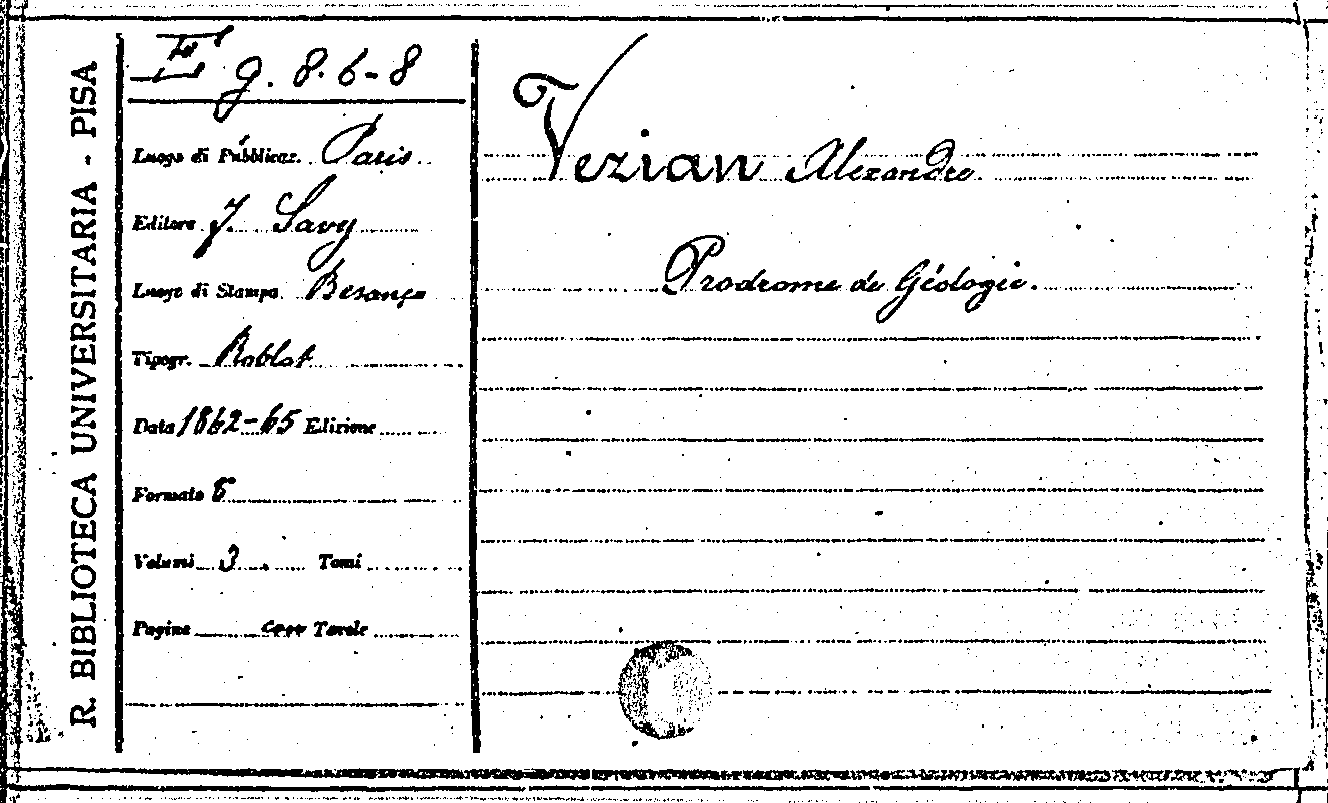 R. BIBLIOTECA UNIVERSITARIA - PISA
g. 8. 6-8
Luogo di Pubblicaz. Paris
Editore J. Savy
Luogo di Stampa Besanço
Tipogr. Roblot
Data 1862-65 Edizione
Formato 8
Volumi 3 Tomi
Pagine con Tavole
Vezian Alexandre
Prodrome de Géologie.